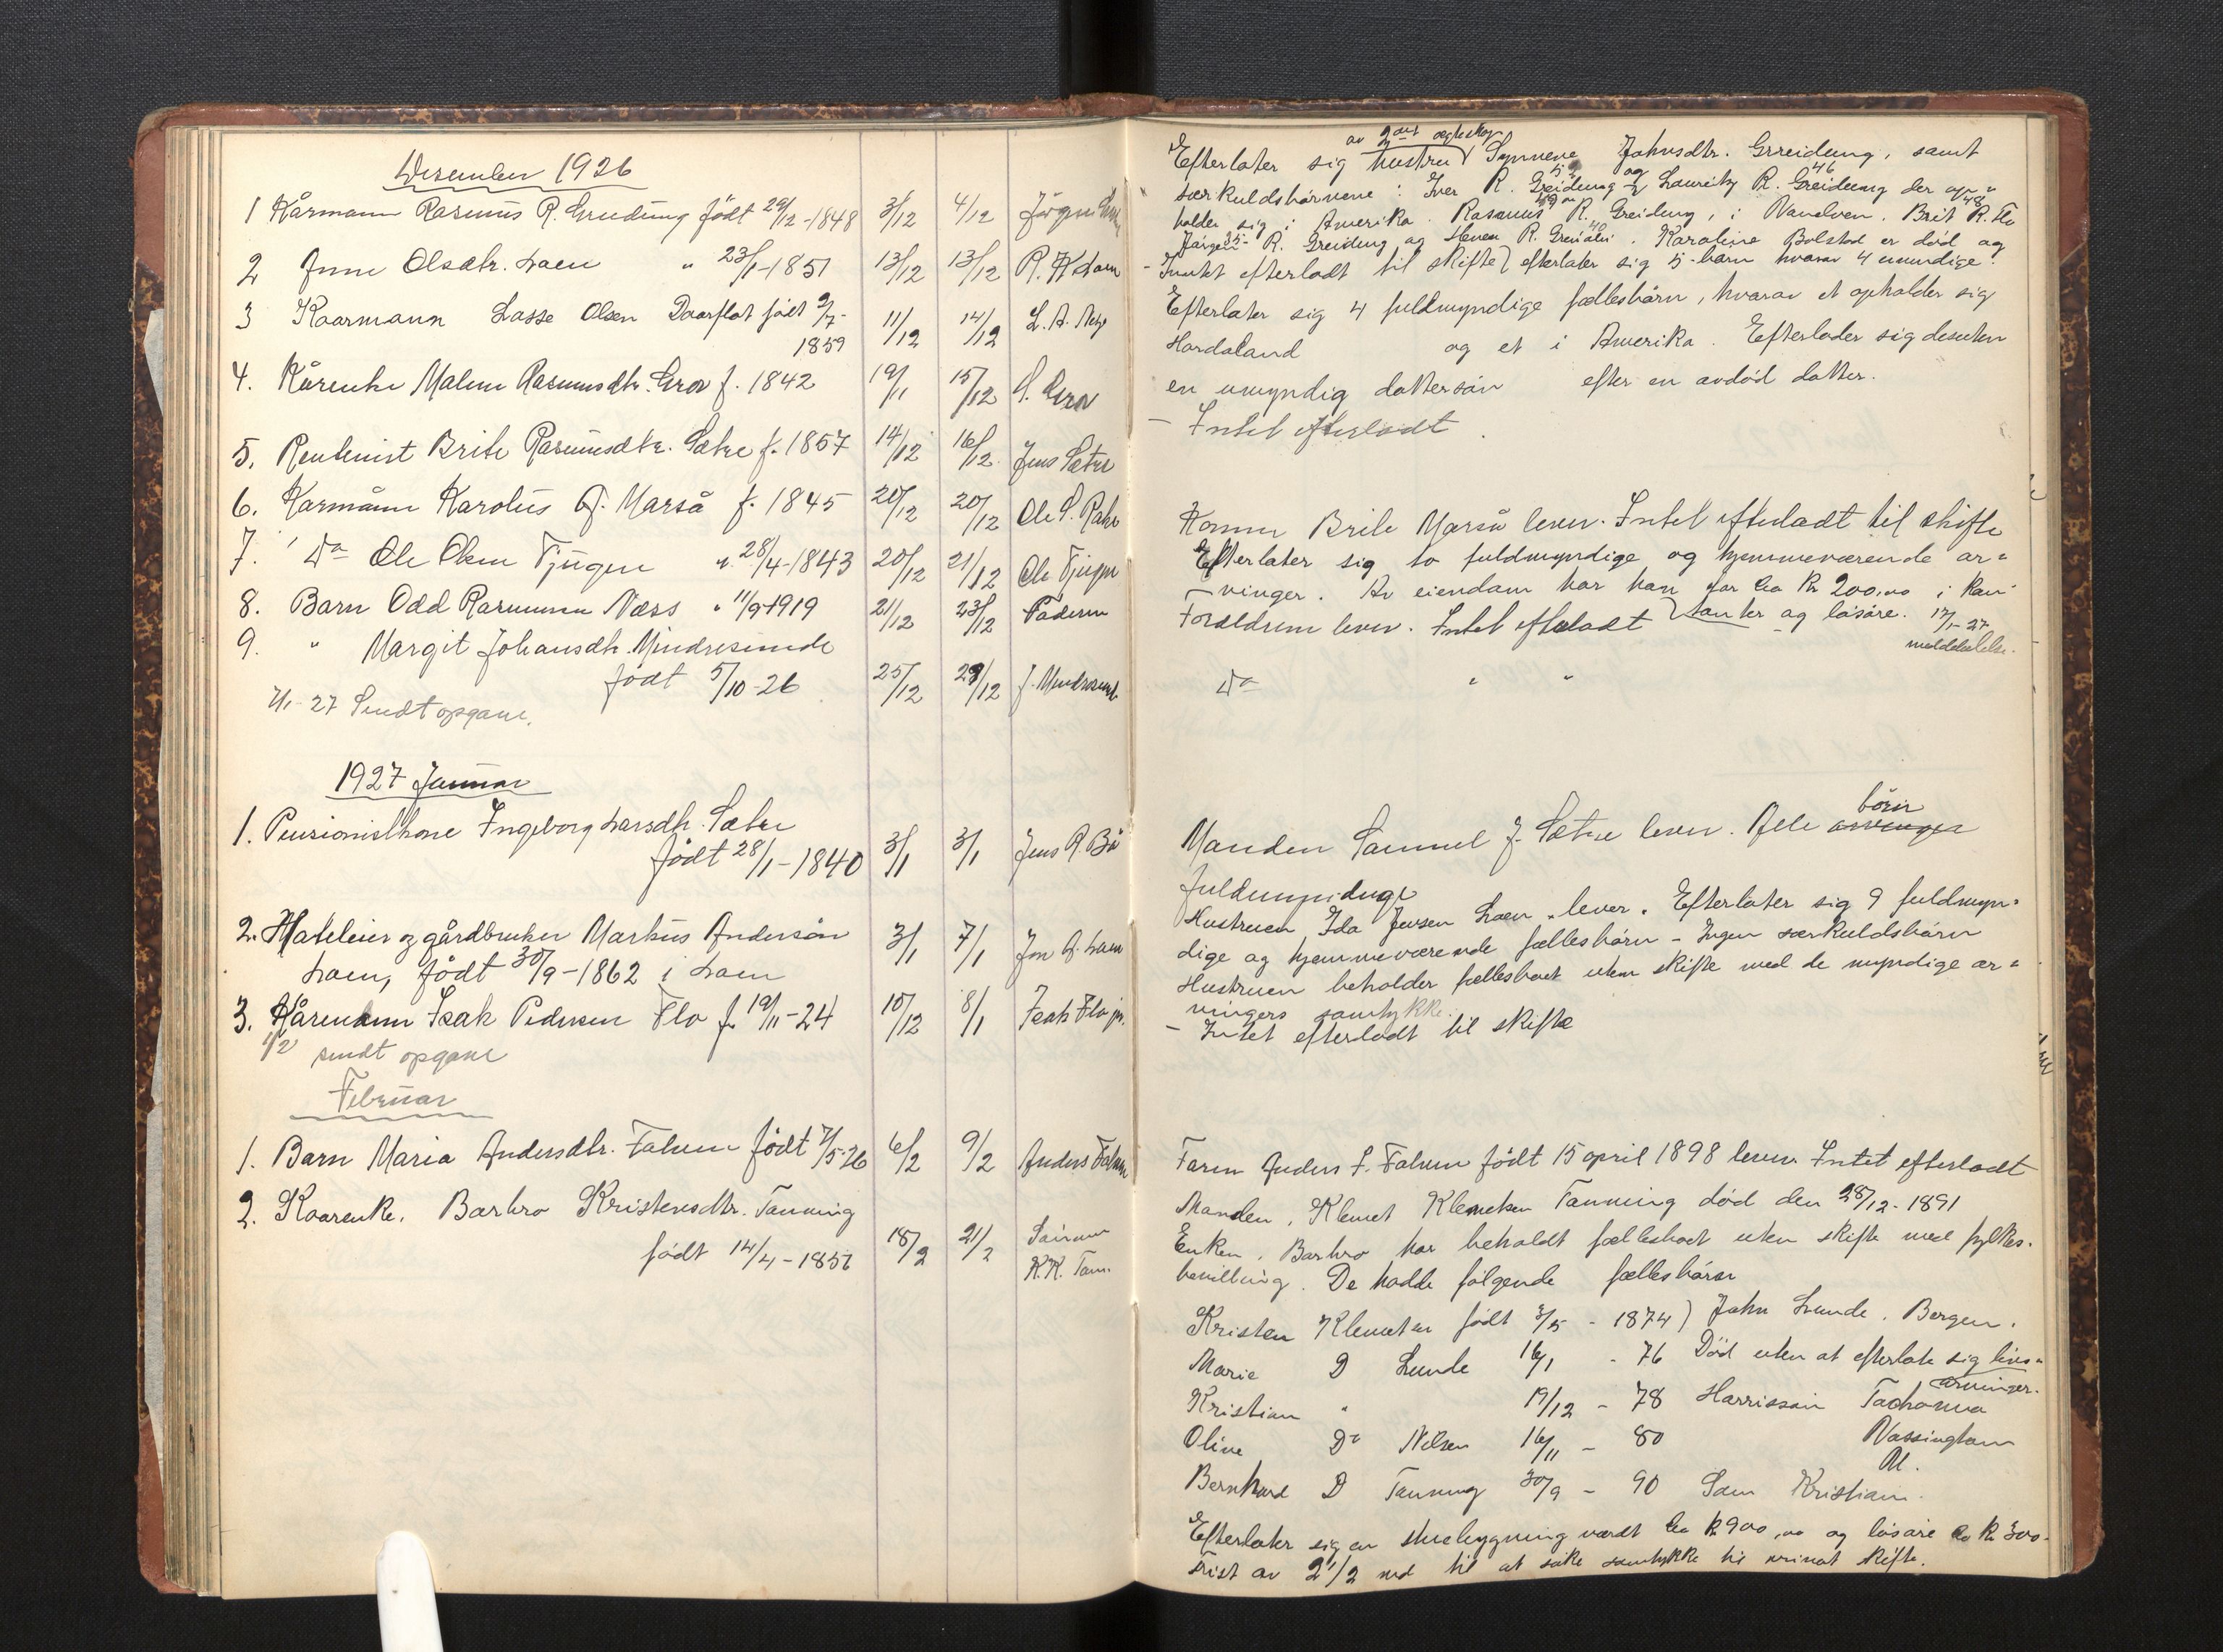 Desember 1926
1 Kårmann Rasmus R. Greidung födt 29/12-1848 3/12 4/12 Jørgen
2 Jnne Olsdtr. Loen " 23/1-1851 13/12 13/12 R. K Loen
3 Kaarmann Lasse Olsen Daarflot født 9/7- 11/12 14/12
1859
4. Kårenke Malene Rasmusdtr. Grov f. 1842 19/11 15/12 S. Grov
5. Rentenist Brite Rasmusdtr. Sætre f. 1857 14/12 16/12 Jens Sætre
6. Karmånn Karolus A. Marså f. 1845 20/12 20/12 Ole S. Rake
7. Do Ole Olsen Tjugen " 28/4-1843 20/12 21/12 Ole Tjugen
8. Barn Odd Rasmussen Næss " 11/9-1919 21/12 23/12 Faderen
9. " Margit Johansdtr. Mindresunde
født 5/10-26 25/12 29/12 J. Mindresunde
4/1-27 Sendt opgave.
1927 Januar
1. Pensionistkone Ingeborg Larsdtr. Sætre
født 28/1-1840 3/1 3/1 Jens R. Bö
2. Hoteleier og gårdbruker Markus Anderson 3/1 7/1 Jon A. Loen
Loen, født 30/9-1862 i Loen
3. Kåremann Isak Pedersen Flo f. 19/11-24 10/12 8/1 Isak Flo jr.
1/2 sendt opgave
Februar
1. Barn Maria Andersdtr. Folven født 7/5-26 6/2 9/2 Anders Folven
2. Kaarenke. Barbro Kristensdtr. Tanning
født 14/4-1851 18/2 21/2 Sönnen
K.K. Tann.
av 2det egteskap
Efterlater sig hustru Synneve Johnsdtr. Greidung, samt
særkuldsbørnene: Iver R. Greidung og Lauritz R. Greidung der op-
holder sig i Amerika. Rasmus R. Greidung, i Vanelven. Brit R. Flo
Jørgen R. Greidung og Steven R. Greidung. Karoline Bolstad er død og
- Inntet efterladt til skifte efterlater sig 5 barn hvorav 4 umundige.
Efterlater sig 4 fuldmyndige fællesbörn, hvorav et opholder sig
Hordaland og et i Amerika. Efterlader sig desuten
en umyndig dattersön efter en avdød datter.
- Intet efterladt.
Konen Brite Marså lever. Intet efterladt til skifte
Efterlater sig to fuldmyndige og hjemmeværende ar-
vinger. Av eiendom har han for ca Kr 200,00 i kon-
Foreldrene lever. Intet efterladt tanter og løsøre. 17/1-27
meddelelse.
Do " "
Manden Samuel J. Sætre lever. Alle arvinger börn
fuldmyndige
Hustruen Ida Jensen Loen lever. Efterlater sig 9 fuldmyn-
dige og hjemmeværende fællesbörn - Ingen særkuldsbörn
Hustruen beholder fællesboet uten skifte med de myndige ar-
vingers samtykke.
- Intet efterladt til skifte
Faren Anders S. Folven født 15 april 1898 lever. Intet efterladt
Manden, Klemet Klemetsen Tanning død den 28/12-1891
Enken, Barbro har beholdt fællesboet uten skifte med fylkes-
bevilling. De hadde følgende fællesbörn
Kristen Klemetsen født 3/5 - 1874) John Lunde. Bergen.
Marie D Lunde 16/1 - 76 Død uten at efterlate sig livs-
arvinger.
Kristian " 19/12 - 78 Harrisson Tachoma
Oline Do Nilsen 16/11 - 80 Vassingham
Bernhard D Tanning 30/9 - 90 Som Kristian.
Efterlater sig en stuebygning værdt ca kr 900,00 og løsøre ca kr 300.
Frist av 2 1/2 md til at søke samtykke til privat skifte.